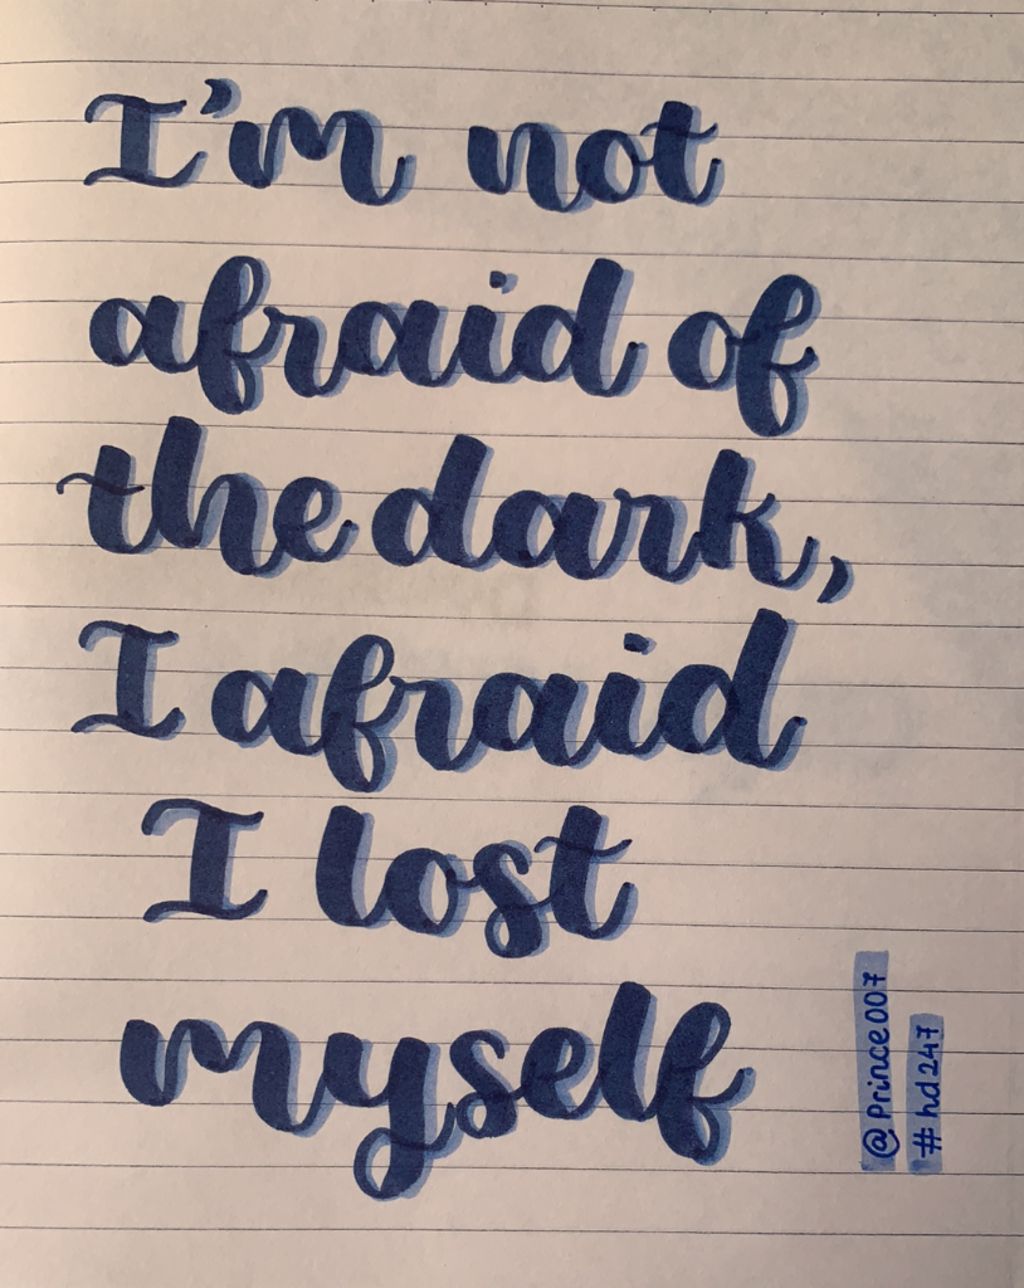 I'm not
afraid of
the dark,
I afraid
I lost
myself
@Prince007
#hd247